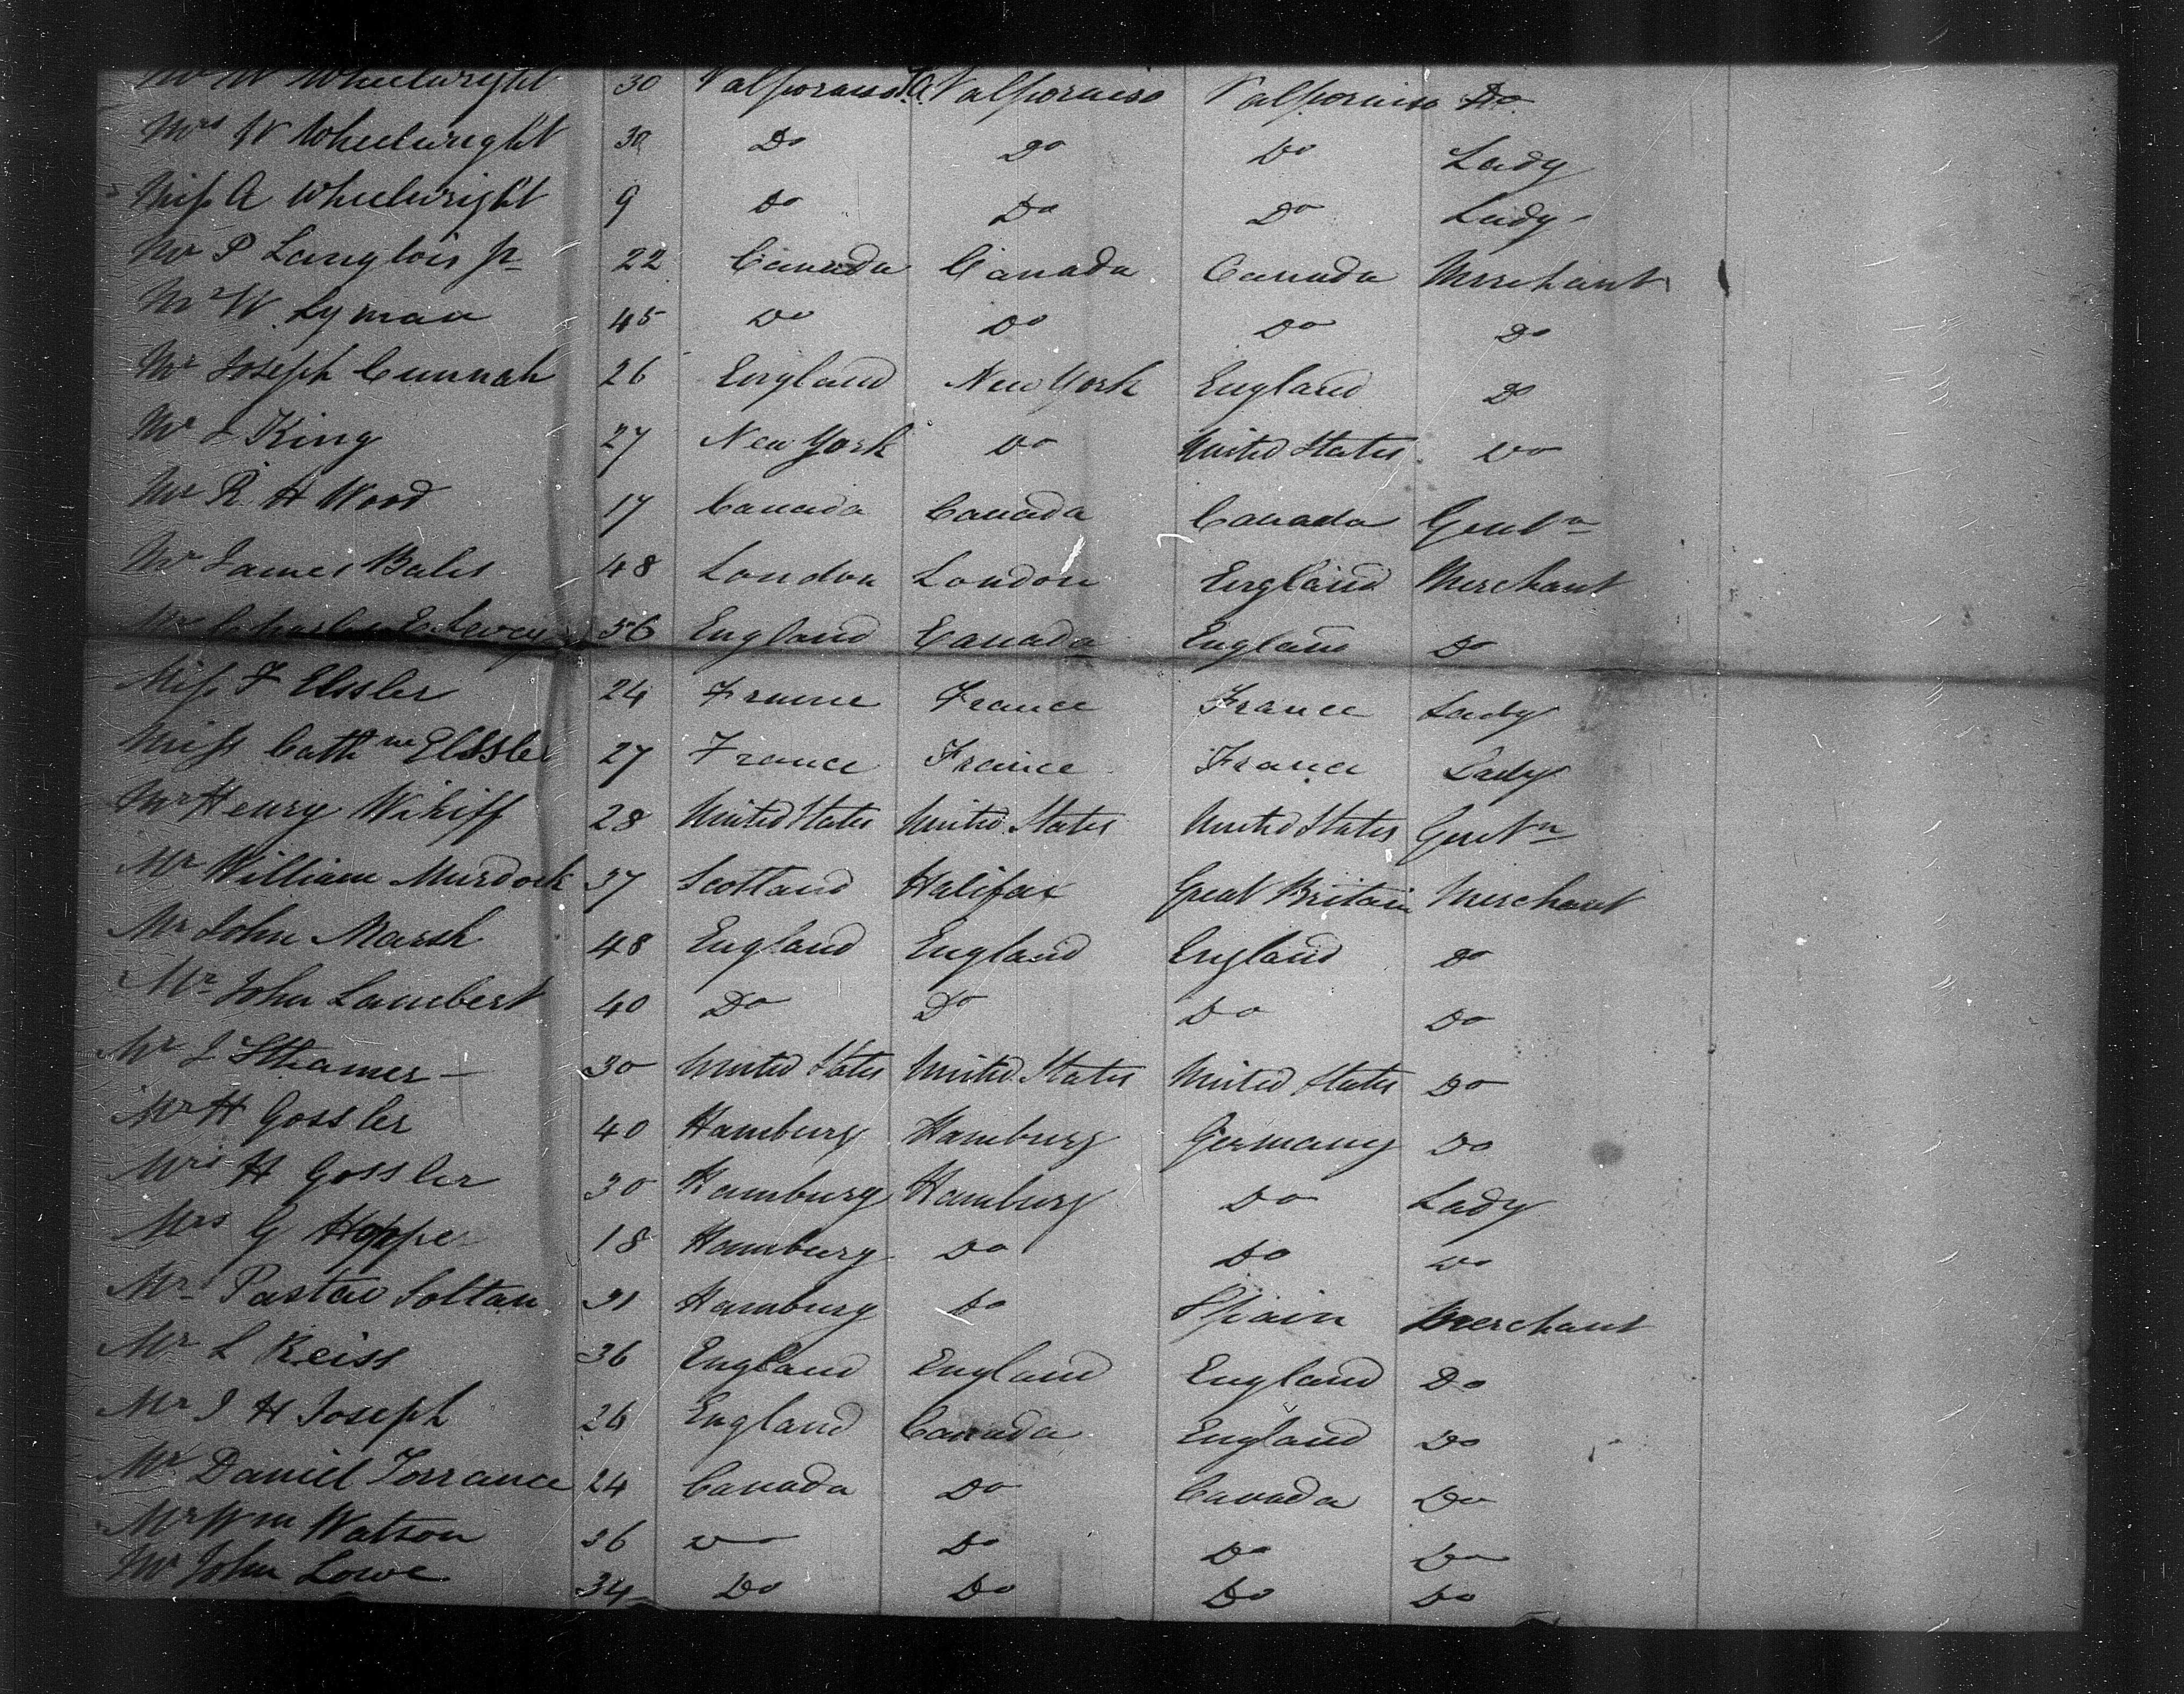 Mr W Wheelwright 30 Valporaiso Valporaiso Valporaiso Do
Mrs W Wheelwright 30 Do Do Do Lady
Miss A Wheelwright 9 Do Do Do Lady
Mr P Langlois Jr 22 Canada Canada Canada Merchant
Mr W Lyman 45 Do Do Do Do
Mr Joseph Cunnah 26 England New York England Do
Mr J King 27 New York Do United States Do
Mr R H Wood 17 Canada Canada Canada Gentn
Mr James Bales 48 London London England Merchant
Mr Charles E 56 England Canada England Do
Miss F Elssler 24 France France France Lady
Miss Cathne Elssler 27 France France France Lady
Mr Henry Wikiff 28 United States United States United States Gentn
Mr William Murdock 37 Scotland Halifax Great Britain Merchant
Mr John Marsh 48 England England England Do
Mr John Lambert 40 Do Do Do Do
Mr J 30 United States United States United States Do
Mr H Gossler 40 Hamburg Hamburg Germany Do
Mrs H Gossler 30 Hamburg Hamburg Do Lady
Mrs G Hoppe 18 Hamburg Do Do Do
Mr Pastav Soltau 31 Hamburg Do Spain Merchant
Mr L Reiss 36 England England England Do
Mr J H Joseph 26 England Canada England Do
Mr Daniel Torrance 24 Canada Do Canada Do
Mr Wm Watson 36 Do Do Do Do
Mr John Lowe 34 Do Do Do Do